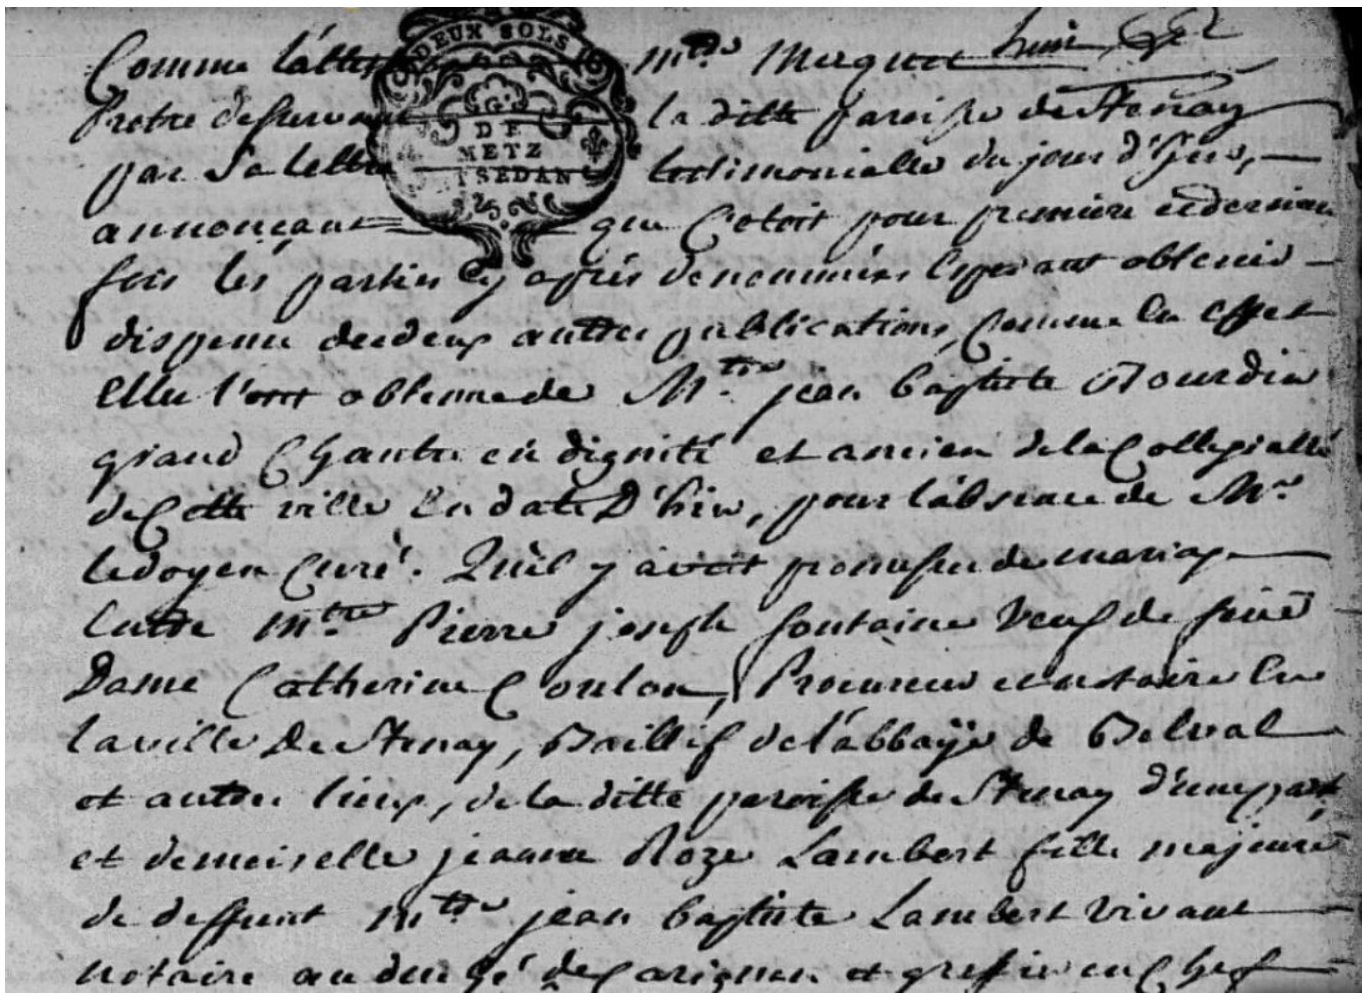 Comme l'atteste Mtre Merguet
Pretre desservant la ditte paroisse de Stenay
par Sa lettre testimonialle du jour d'hier,
annonçant que C'etoit pour premiere et derniere
fois les parties Cy après denommées Esperant obtenir
dispense de deux autres publications, Comme En Effet
Elles l'ont obtenue de Mtre jean baptiste Bourdin
grand Chantre en dignité et ancien de la Collegialle
de Cette ville En date D'hier, pour l'absence de Mr
le doyen Curé. Qu'il y avoit promesse de mariage
Entre Mtre Pierre joseph fontaine Veuf de feue
Dame Catherine Coulon, Procureur et notaire En
la ville de Stenay, Baillif de l'abbaÿe de Belval
et autres lieux, de la ditte paroisse de Stenay d'une part
et demoiselle jeanne Roze Lambert fille majeure
de deffunt Mtre jean baptiste Lambert Vivant
notaire au duché de Carignan et greffier en Chef
DEUX SOLS
G DE
METZ
SEDAN